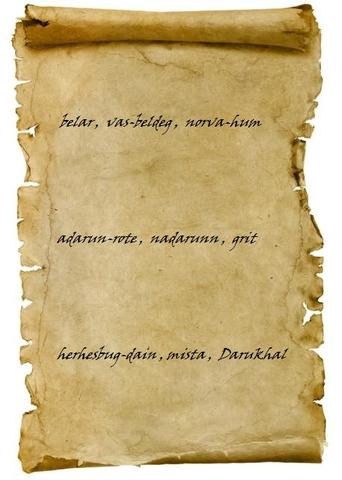 belar, vas-beldeg, norva-hum
adarun-rote, nadarunn, grit
herhesbug-dain, mista, Darukhal